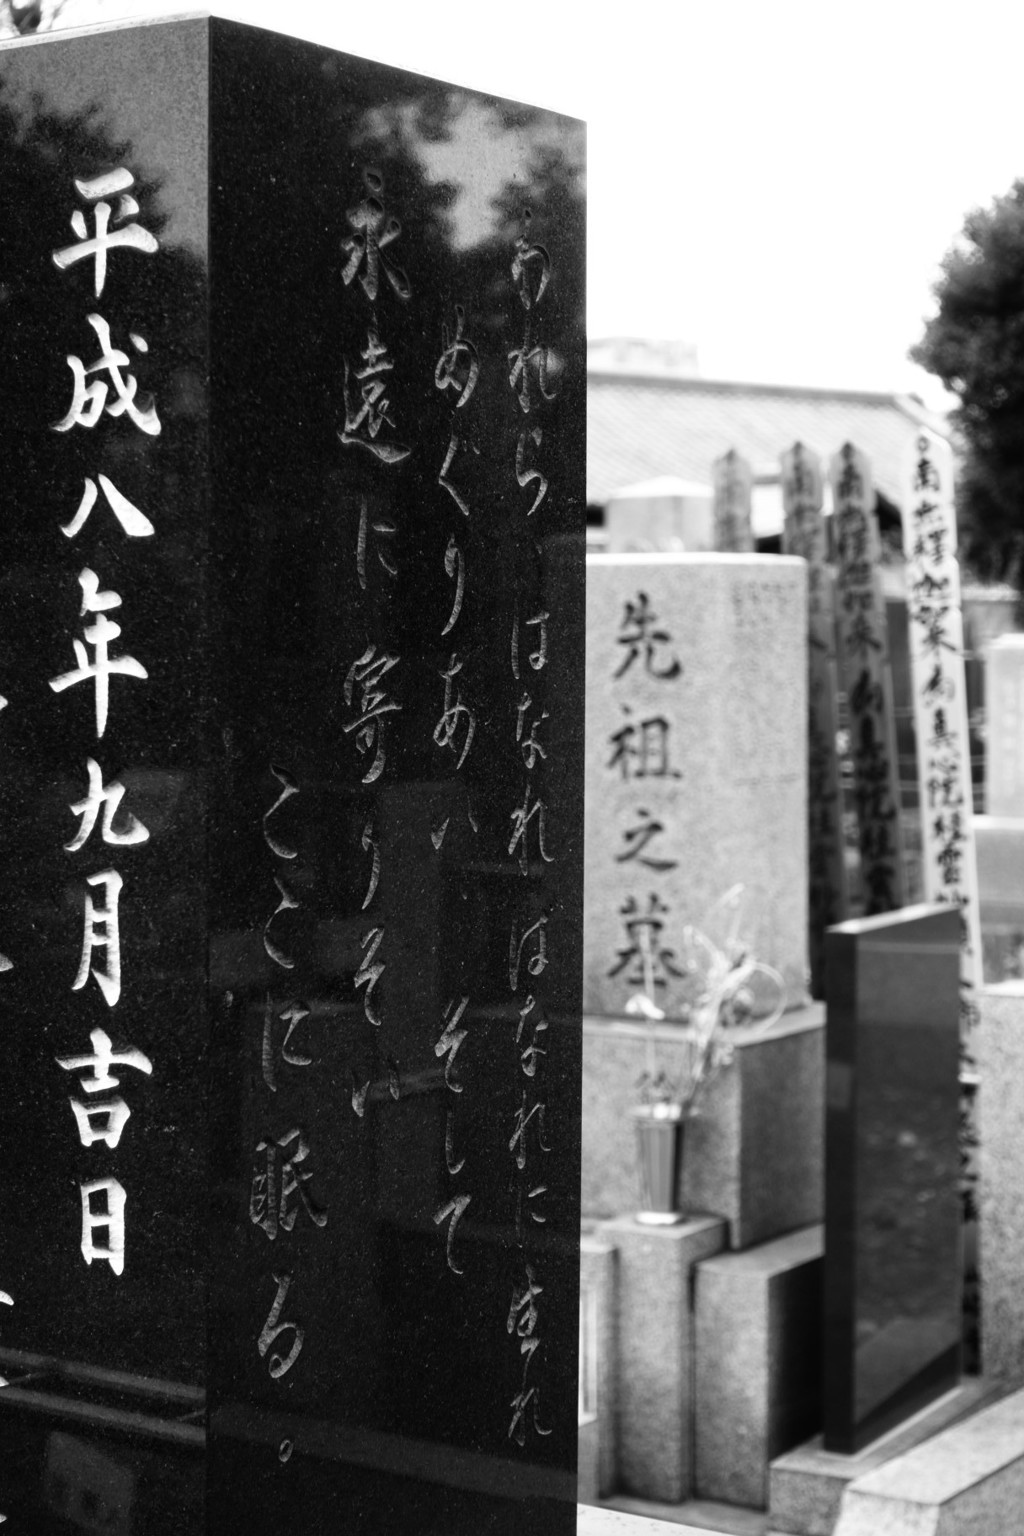 平成八年九月吉日
われらはなればなれに生れ
めぐりあい、そして
永遠に寄りそい
ここに眠る。
先祖之墓
南無釋迦